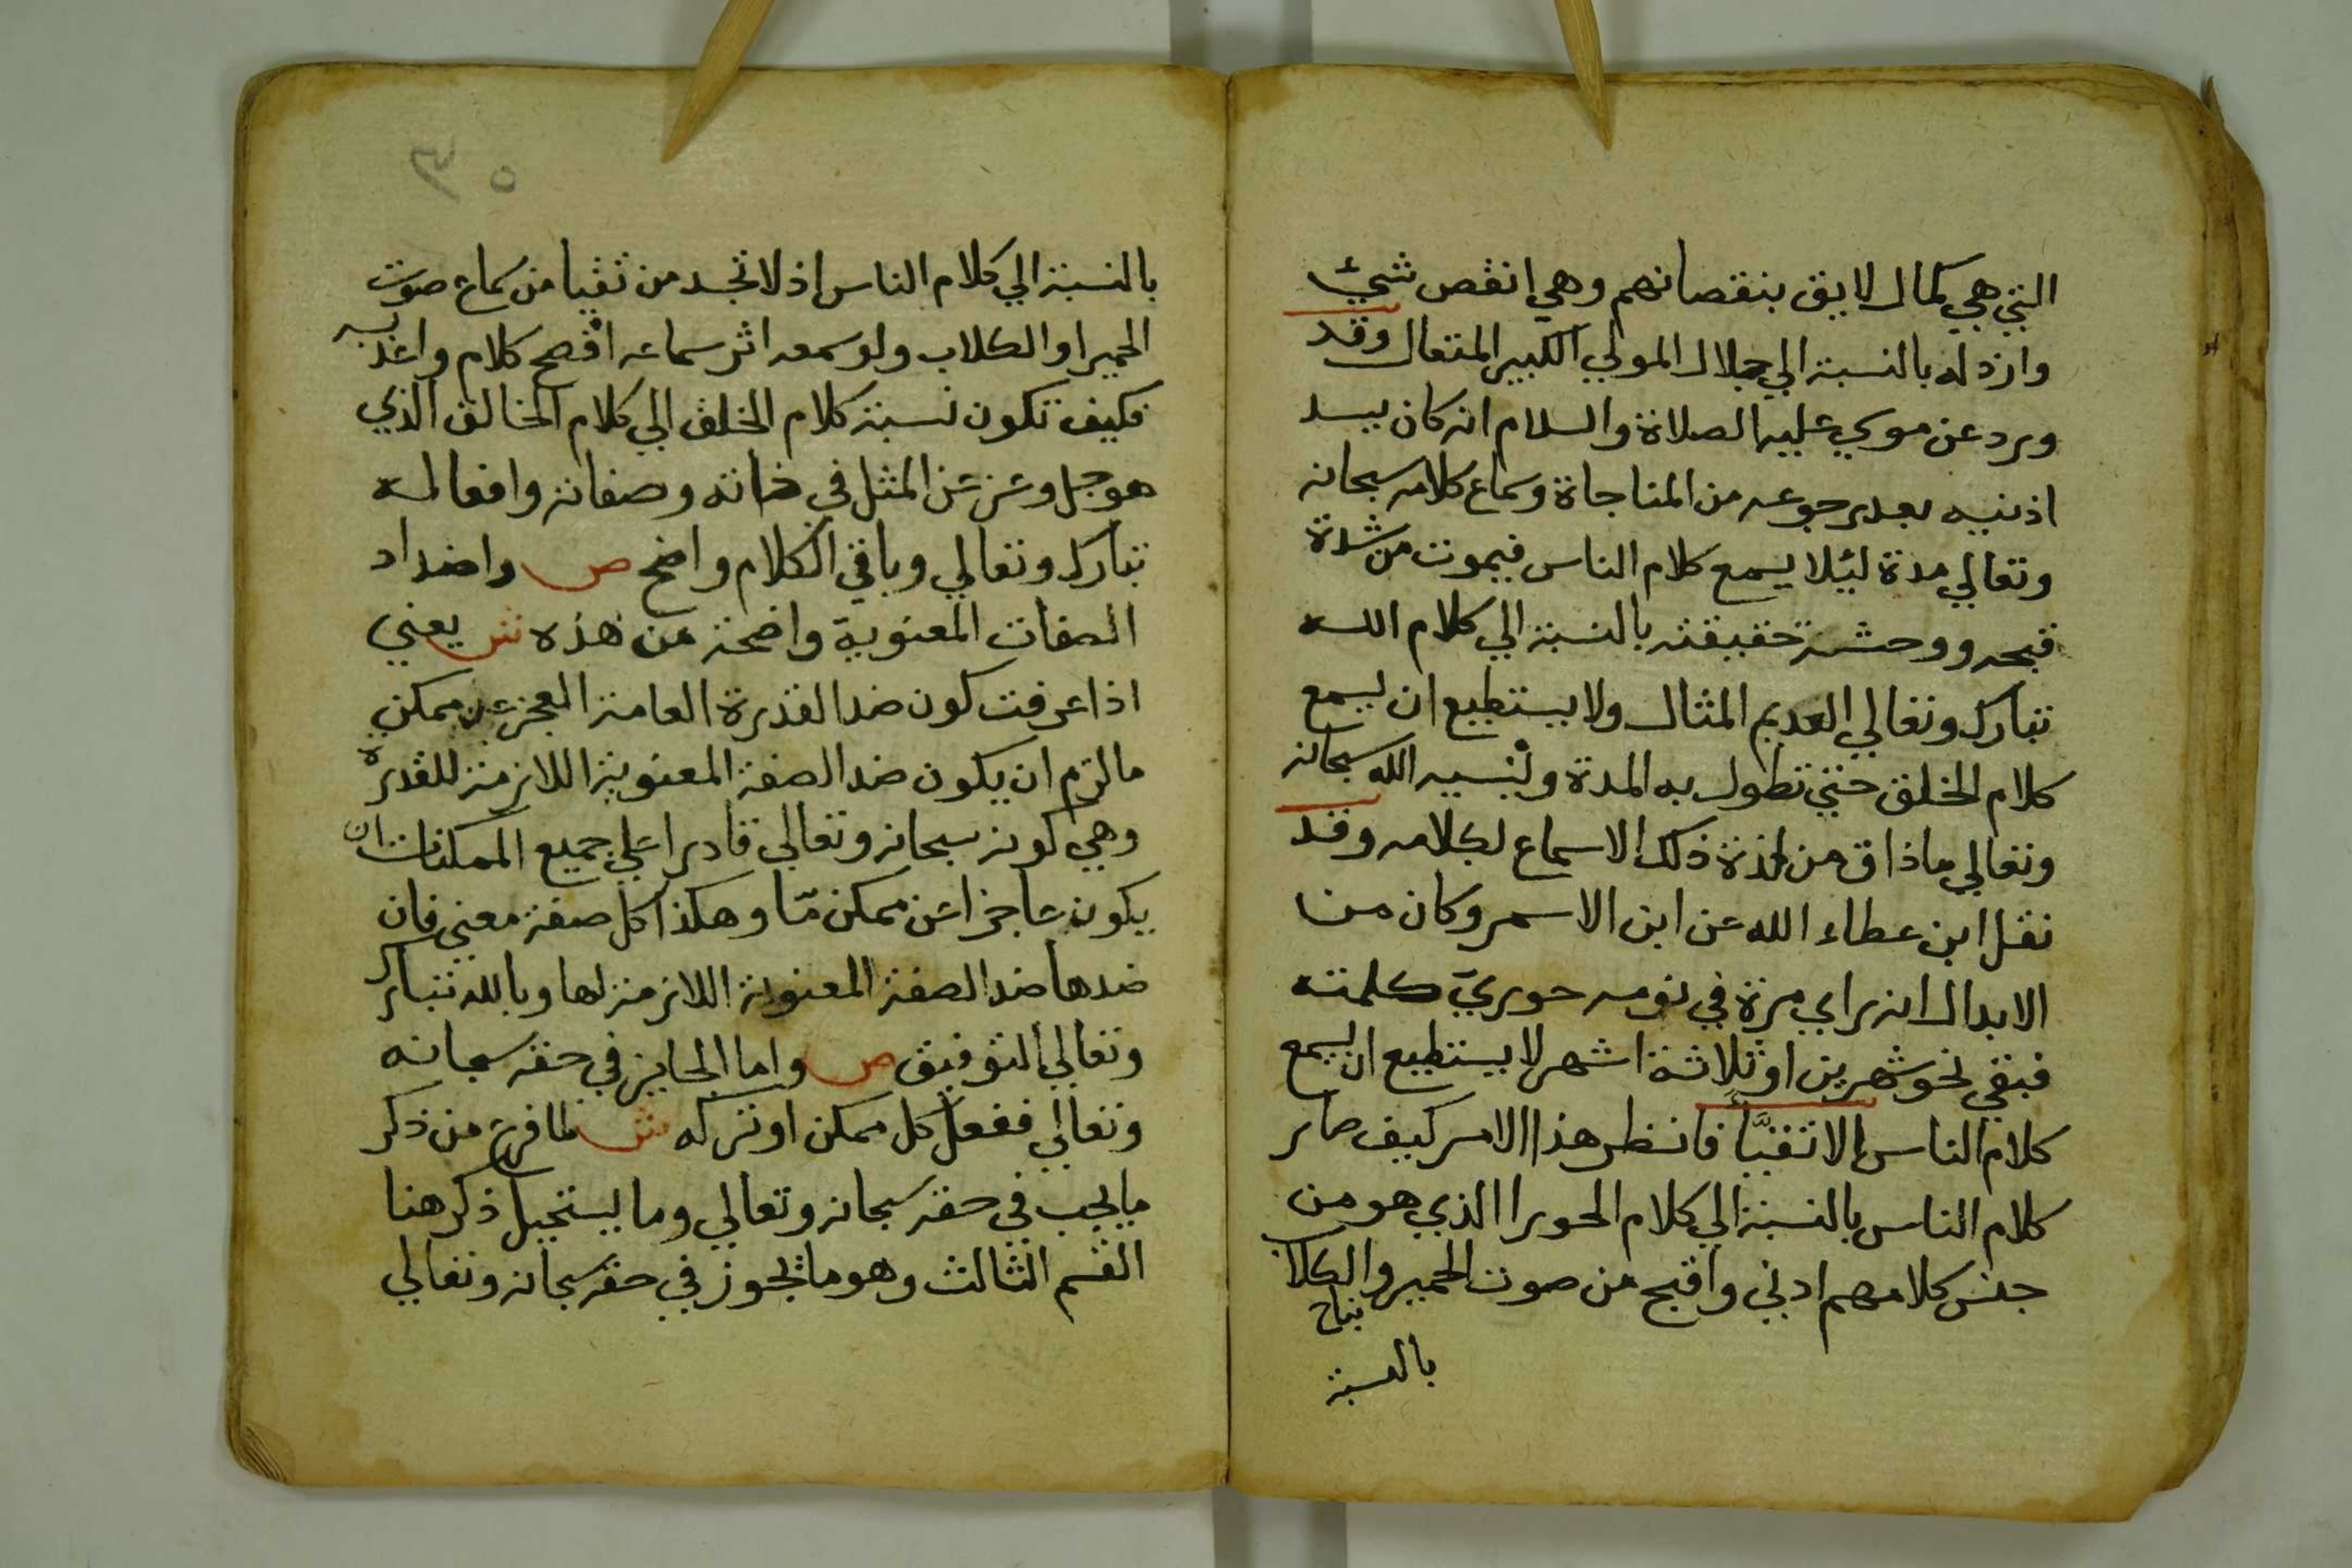 التي هي كمال لايق بنقصانهم وهي انقص شيئ
وارذله بالنسبة الي جلال المولي الكبير المتعال وقد
ورد عن موسي عليه الصلاة والسلام انه كان يسد
اذنيه بعد رجوعه من المناجاة وسماع كلامه سبحانه
وتعالي مدة ليئلا يسمع كلام الناس فيموت من شدة
قبحه ووحشة حقيقته بالنسبة الي كلام الله
تبارك وتعالي العديم المثال ولا يستطيع ان يسمع
كلام الخلق حتي تطول به المدة وينسيه الله سبحانه
وتعالي ماذاق من لذة ذلك الاسماع لكلامه وقد
نقل ابن عطاء الله عن ابن الاسمر وكان من
الابدال انه راي مرة في نومه حورية كلمته
فبقي نحو شهرين او ثلاثة اشهر لا يستطيع ان يسمع
كلام الناس الا تقيّأ فانظر هذا الامر كيف صار
كلام الناس بالنسبة الي كلام الحورا الذي هو من
جنس كلامهم ادني واقبح من صوت الحمير والكلاب
نباح
بالنسبة
بالنسبة الي كلام الناس اذ لا تجد من تقيا من سماع صوت
الحمير او الكلاب ولو سمعه اثر سماعه افصح كلام واعذبه
فكيف تكون نسبة كلام الخلق الي كلام الخالق الذي
هو جل وعز عن المثل في ذاته وصفاته وافعاله
تبارك وتعالي وباقي الكلام واضح ص واضداد
الصفات المعنوية واضحة من هذه ش يعني
اذا عرفت كون ضد القدرة العامة العجز عن ممكن
ما لزم ان يكون ضد الصفة المعنوية اللازمة للقدرة
وهي كونه سبحانه وتعالي قادرا علي جميع الممكنات ان
يكون عاجزا عن ممكن مّا وهكذا كل صفة معني فان
ضدها ضد الصفة المعنوية اللازمة لها وبالله تبارك
وتعالي التوفيق ص واما الجايز في حقه سبحانه
وتعالي ففعل كل ممكن او تركه ش لما فرغ من ذكر
ما يجب في حقه سبحانه وتعالي وما يستحيل ذكر هنا
القسم الثالث وهو ما يجوز في حقه سبحانه وتعالي